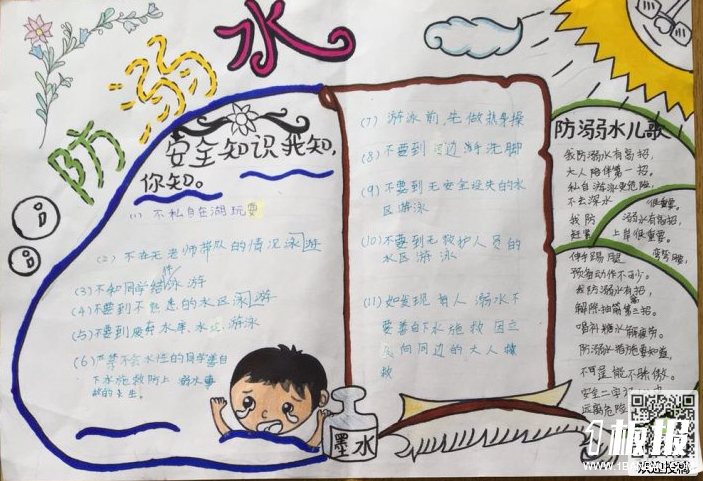 防溺水
安全知识我知,
你知。
(1) 不私自在湖玩耍
(2) 不在无老师带队的情况泳游
(3) 不和同学结伴泳游
(4) 不要到不熟悉的水区泳游
(5) 不要到废弃水库、水 游泳
(6) 严禁不会水性的同学擅自
下水施救防止 溺水事
故的发生。
(7) 游泳前,先做热身操
(8) 不要到河边游洗脚
(9) 不要到无安全设失的水
区游泳
(10) 不要到无救护人员的
水区游泳
(11) 如发现有人溺水不
要善自下水施救因立
及向周边的大人
救
墨水
防溺水儿歌
我防溺水有高招,
大人陪伴第一招。
私自游泳更危险,
不去深水 很重要。
我防 溺水有高招,
赶紧 上岸很重要。
伸手踢腿 弯弯腰,
预备动作不可少。
我防溺水有高招,
解除抽筋第三招。
喝杯糖水解疲劳。
防溺水措施要知道,
不可逞能不骄傲。
安全二字
远离危险
1板报
WWW.1BANBAO.COM
欢迎投稿